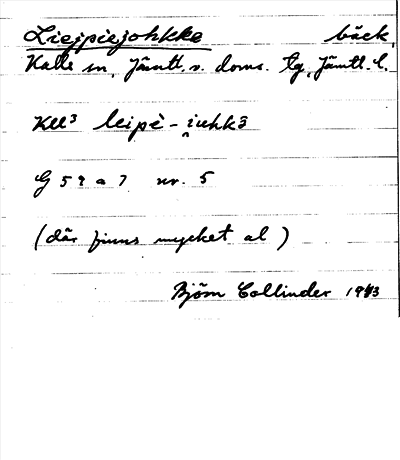 Liejpiejohkke bäck
Kalls sn, Jämtl. n. doms. tg, Jämtl. l.
Kll³ leipè-i̭uhkǝ̑
G 59 a 7 nr. 5
(där finns mycket al)
Björn Collinder 1943